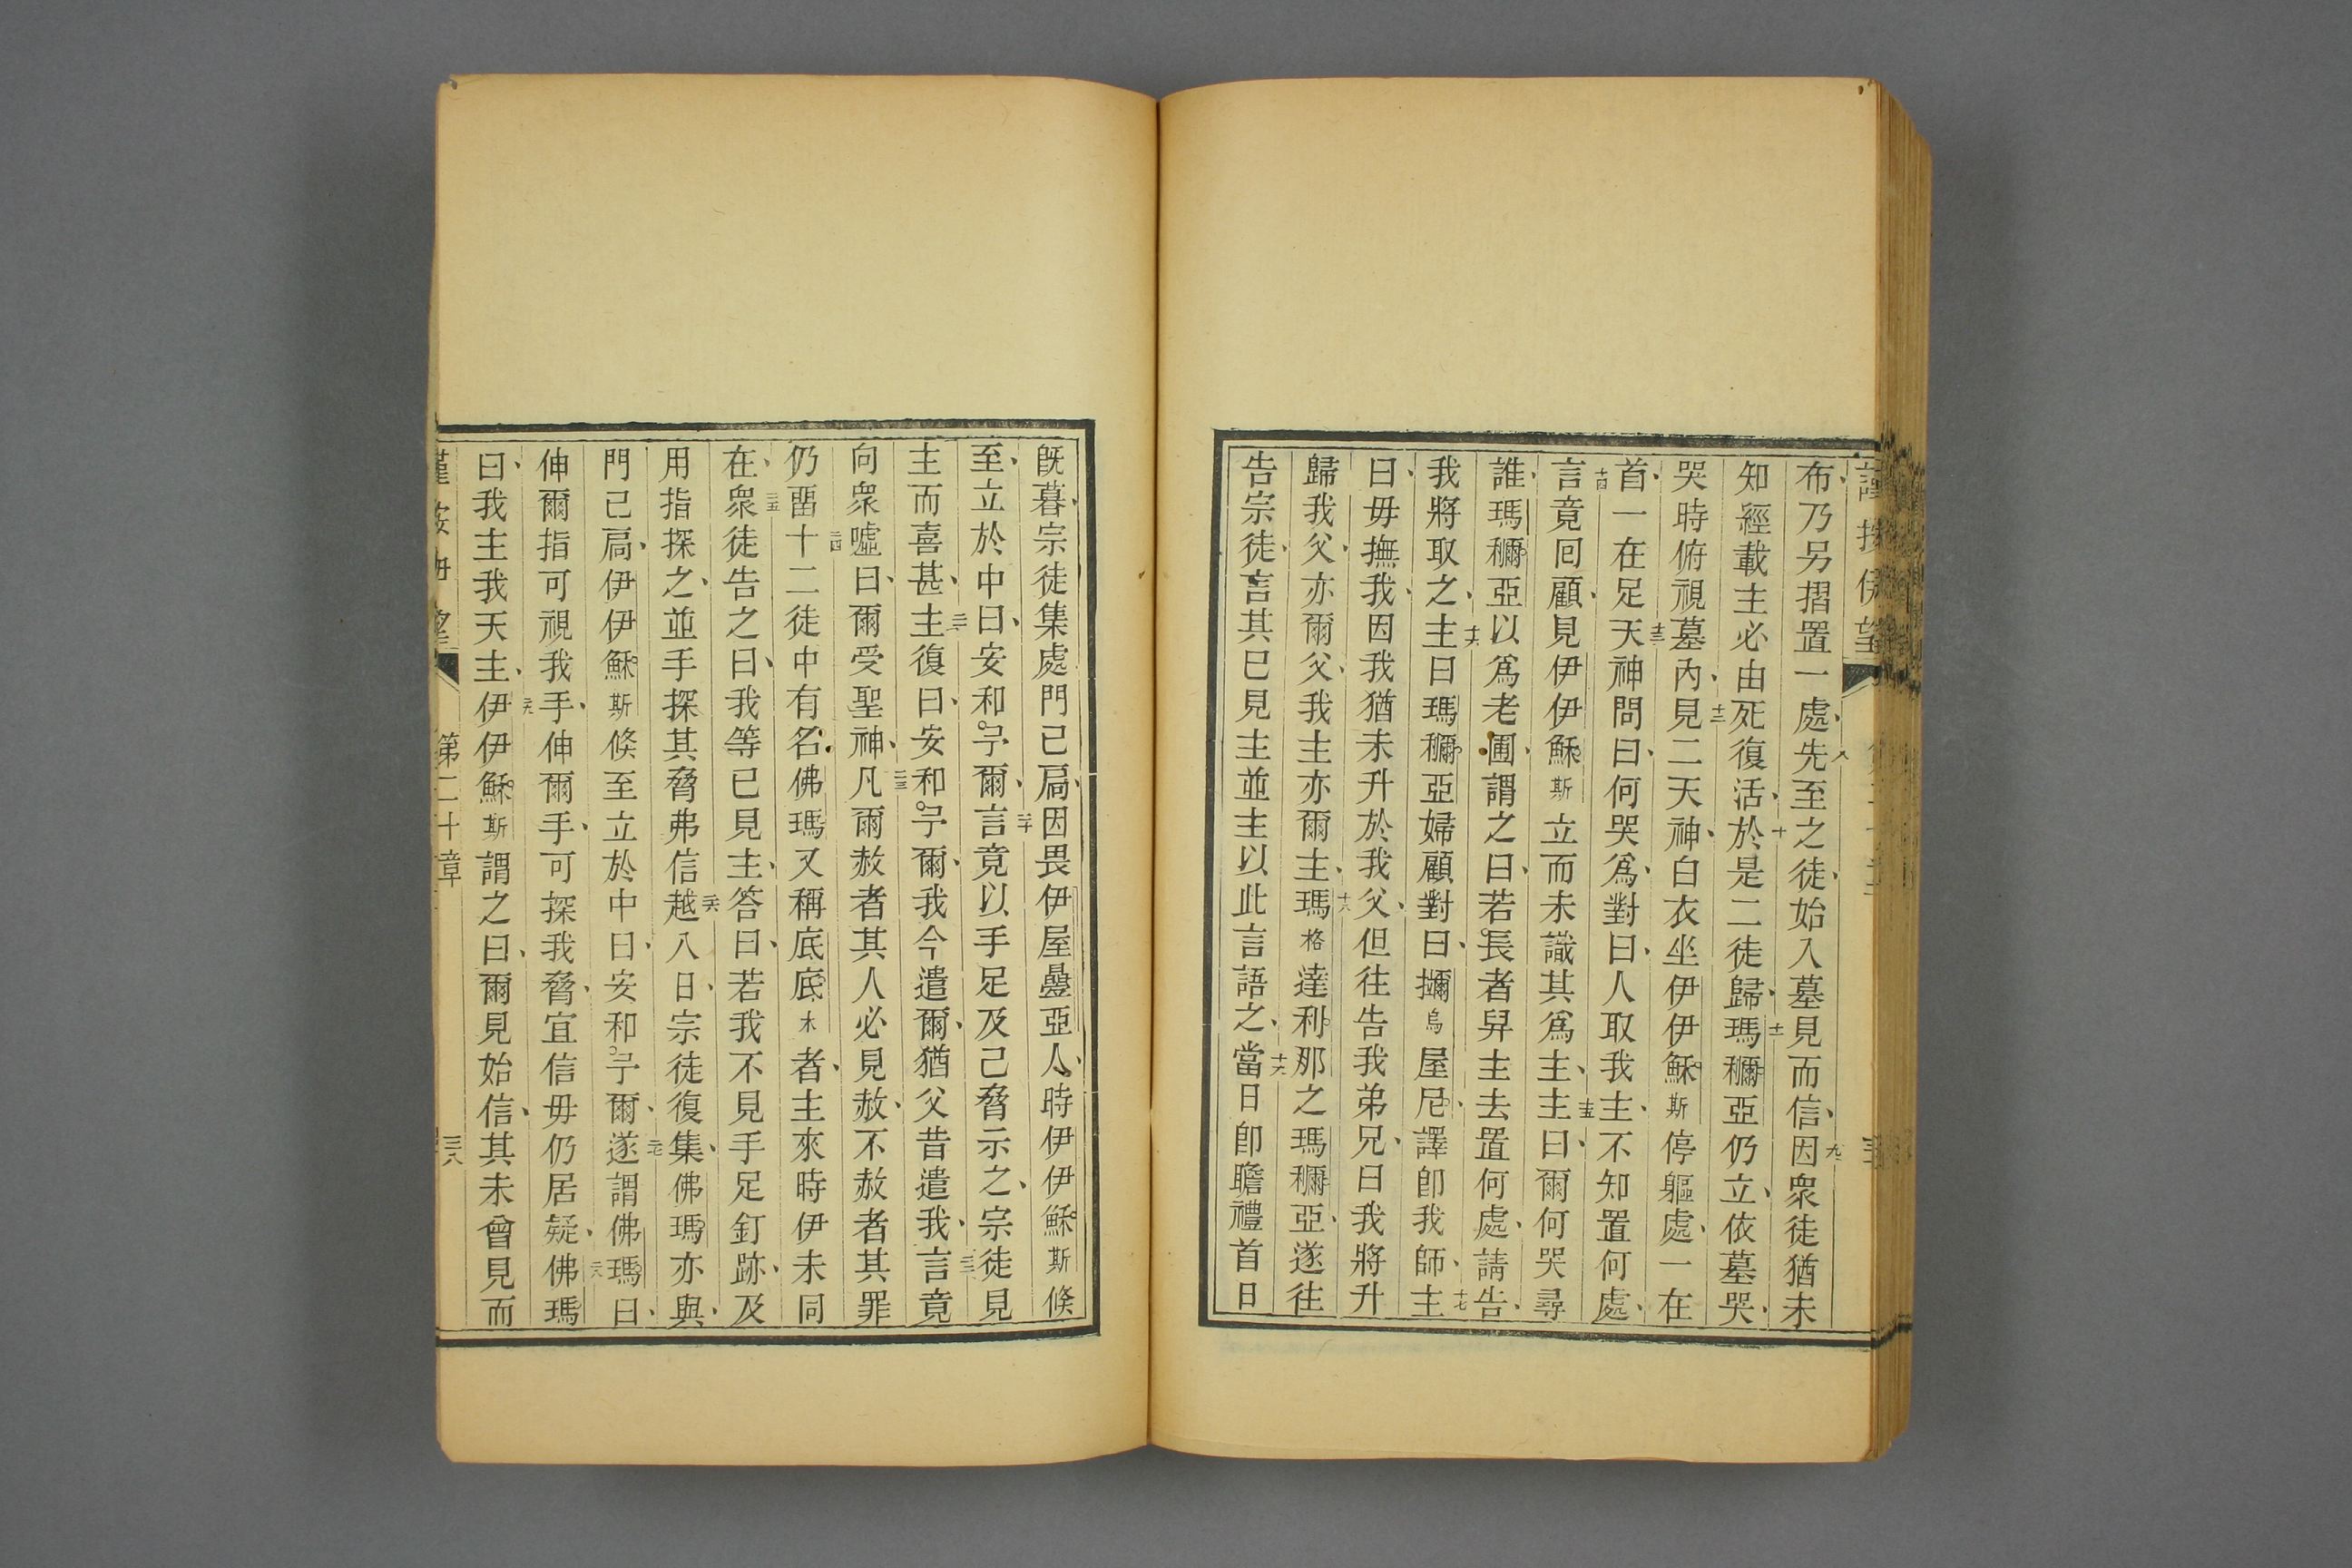 布、乃另摺置一處、八先至之徒、始入墓見而信、九因衆徒猶未
知經載主必由死復活、十於是二徒歸、十一瑪穪亞仍立、依墓哭、
哭時俯視墓內、十二見二天神、白衣坐伊伊穌斯停軀處、一在
首、一在足、十三天神問曰、何哭爲、對曰、人取我主、不知置何處、
十四言竟回顧、見伊伊穌斯立而未識其爲主、十五主曰、爾何哭尋
誰、瑪穪亞以爲老圃、謂之曰、若長者舁主去置何處、請告、
我將取之、十六主曰瑪穪亞婦顧對曰、擟烏屋尼、譯卽我師、十七主
曰、毋撫我、因我猶未升於我父、但往告我弟兄、曰我將升
歸我父、亦爾父、我主亦爾主、十八瑪格達利那之瑪穪亞、遂往
告宗徒、言其已見主並主以此言語之、十九當日卽瞻禮首日
旣暮、宗徒集處門已扃、因畏伊屋疊亞人、時伊伊穌斯倏
至、立於中曰、安和予爾、二十言竟以手足及己脅示之、宗徒見
主而喜甚、二一主復曰、安和予爾、我今遣爾、猶父昔遣我、二二言竟
向衆噓曰、爾受聖神、二三凡爾赦者其人必見赦、不赦者其罪
仍畱、二四十二徒中有名佛瑪又稱底底木者、主來時伊未同
在、二五衆徒告之曰、我等已見主、答曰、若我不見手足釘跡、及
用指探之、並手探其脅弗信、二六越八日、宗徒復集、佛瑪亦與、
門已扃、伊伊穌斯倏至立於中曰、安和予爾、二七遂謂佛瑪曰、
伸爾指可視我手、伸爾手、可探我脅、宜信毋仍居疑、二八佛瑪
曰、我主我天主、二九伊伊穌斯謂之曰、爾見始信、其未曾見而
第二十章
三八